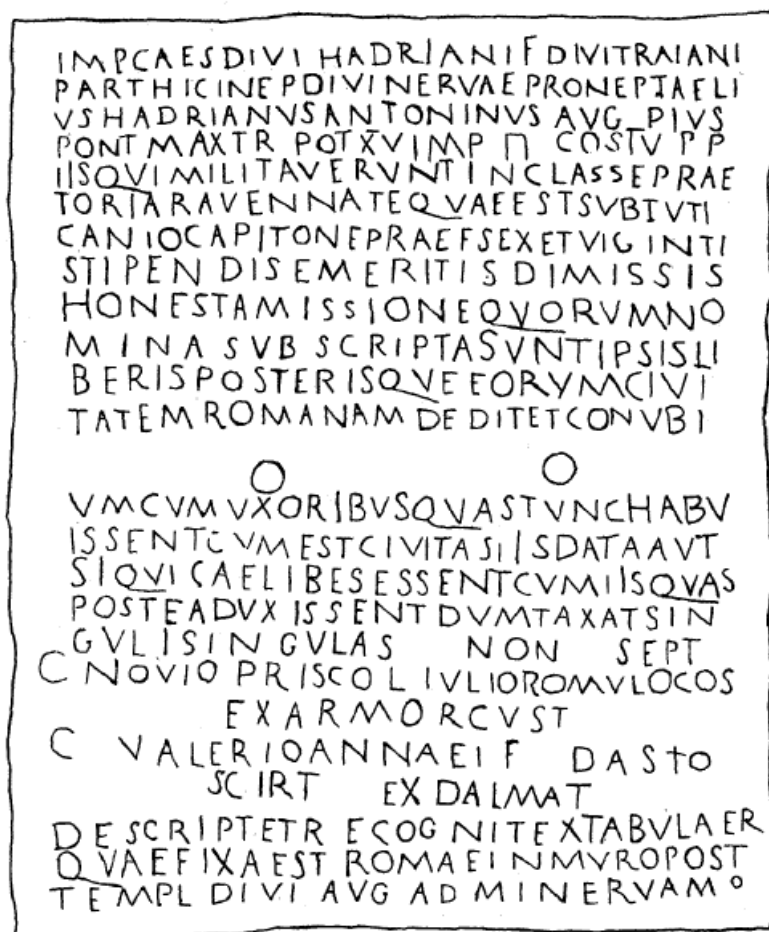 IMPCAESDIVI HADRIANIF DIVITRAIANI
PARTHICINEPDIVINERVAEPRONEPTAELI
VSHADRIANVSANTONINVS AVG PIVS
PONTMAXTR POTXVIMP II COSIV PP
IISQVIMILITAVERVNTINCLASSEPRAE
TORIARAVENNATEQVAEESTSVBTVTI
CANIOCAPITONEPRAEFSEXETVIGINTI
STIPENDISEMERITISDIMISSIS
HONESTAMISSIONEQVORVMNO
MINASVBSCRIPTASVNTIPSISLI
BERISPOSTERISQVEEORVMCIVI
TATEMROMANAM DEDITETCONVBI
VMCVMVXORIBVSQVASTVNCHABV
ISSENTCVMESTCIVITASIISDATAAVT
SIQVICAELIBESESSENTCVMIISQVAS
POSTEADVXISSENTDVMTAXATSIN
GVLISINGVLAS NON SEPT
C NOVIO PRISCO L IVLIOROMVLOCOS
EXARMORCVST
C VALERIOANNAEI F DASTO
SCIRT EX DALMAT
DESCRIPTETRECOGNITEXTABVLAER
QVAEFIXAEST ROMAEINMVROPOST
TEMPL DIVI AVG ADMINERVAM